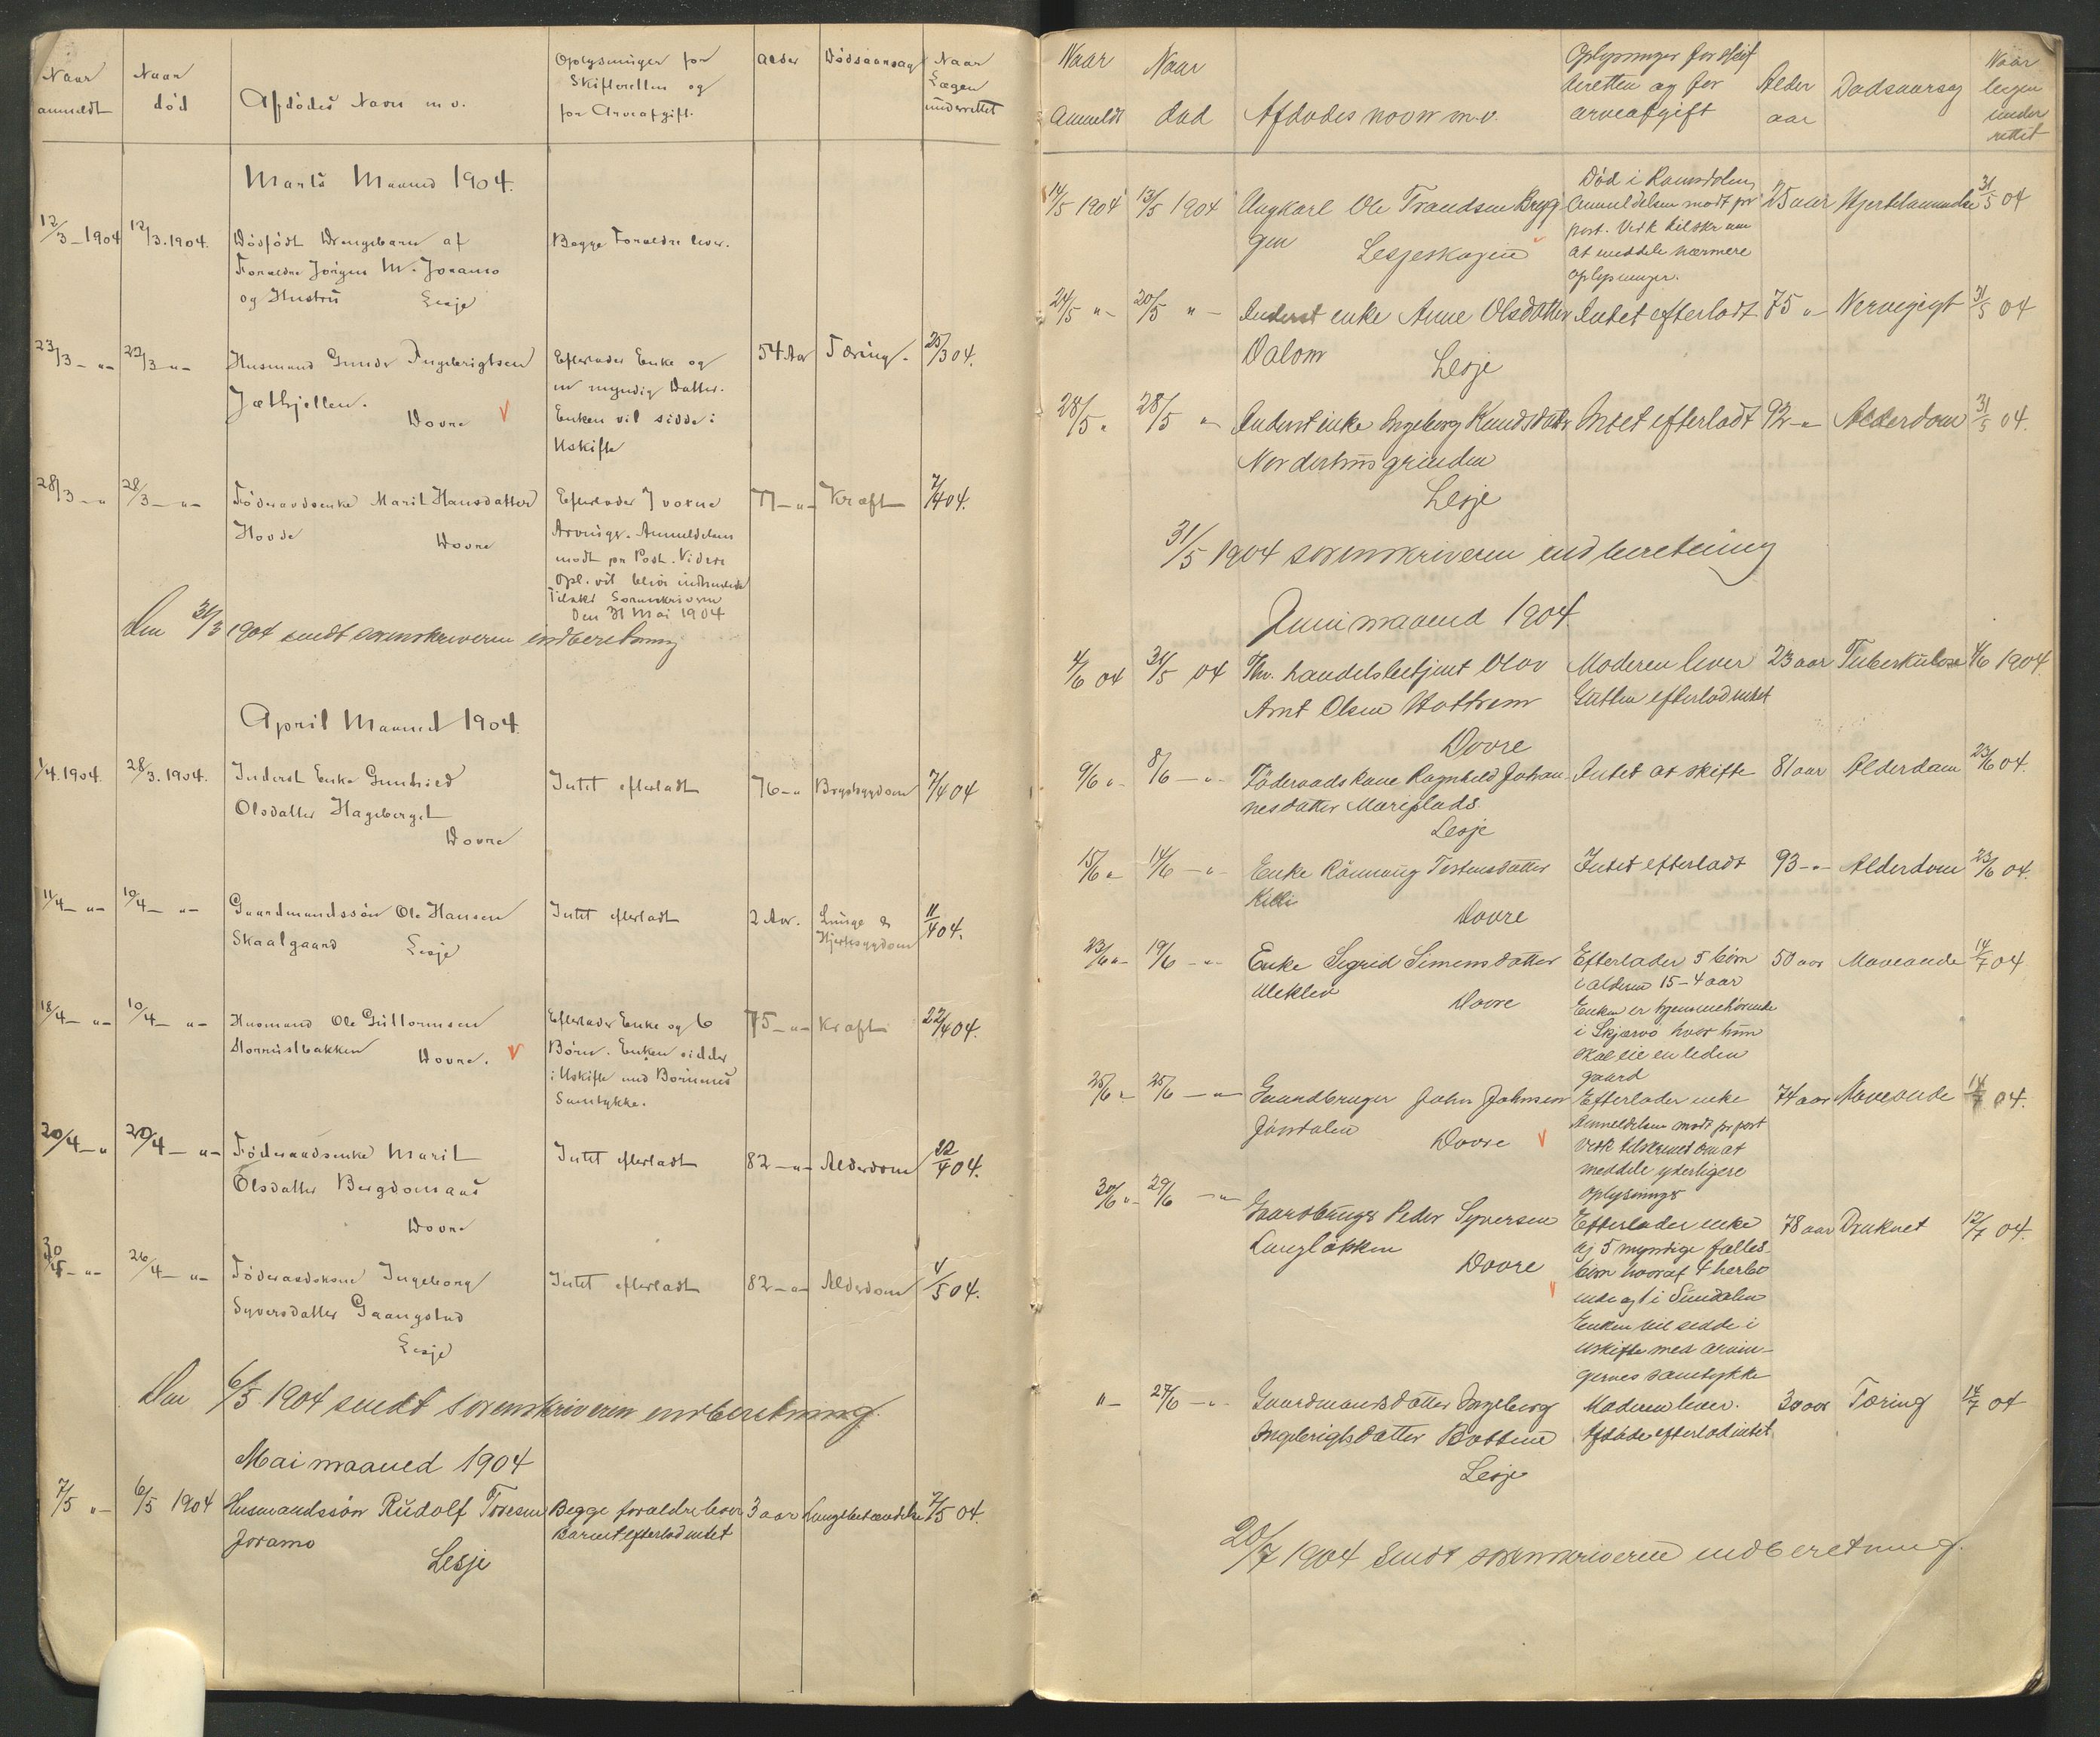 Naar anmeldt | Naar død | Afdødes Navn m.v. | Oplysninger for Skifteretten og for Arveafgift. | Alder | Dødsaarsag | Naar Lægen underrettet
Marts Maaned 1904.
12/3-1904 | 12/3.1904. | Dødfødt Drengebarn af | Begge Forældre lever.
Forældre Jørgen M. Joramo
og Hustru Lesje
23/3 -"- | 23/3 -"- | Husmand Gunder Ingebrigtsen | Efterlader Enke og | 54 Aar | Tæring. | 25/3 04.
Jælhjellen. | en myndig Datter.
Dovre V | Enken vil sidde i
Uskifte
28/3 -"- | 28/3 -"- | Føderaadsenke Marit Hansdatter | Efterlader 7 voxne | 77 -"- | Kræft | 7/4 04.
Hovde Dovre | Arvinger. Anmeldelsen
modt pr Post. Videre
Opl. vil blive indhentede
Tilskr Sorenskriveren
Den 31 Mai 1904
Den 31/3 1904 sendt sorenskriveren indberetning
April Maaned 1904.
1/4.1904. | 28/3.1904. | Inderst Enke Gunhild | Intet efterladt | 76 -"- | Brystsygdom | 7/4 04
Olsdatter Hageberget
Dovre
11/4 -"- | 10/4 -"- | Gaardmandssøn Ole Hansen | Intet efterladt | 2 Aar. | Lunge & | 11/4 04.
Skaalgaard Lesje | Hjertesygdom
18/4 -"- | 10/4 -"- | Husmand Ole Guttormsen | Efterlader Enke og 6 | 75 -"- | Kræft | 22/4 04.
Dovre. V | Børn. Enken sidder
i Uskifte med Børnenes
Samtykke.
20/4 -"- | 20/4 -"- | Føderaadsenke Marit | Intet efterladt | 82 -"- | Alderdom | 22/4 04.
Olsdatter Bergdomaas
Dovre
30/4 -"- | 26/4 -"- | Føderaadskone Ingeborg | Intet efterladt | 82 -"- | Alderdom | 4/5 04.
Syversdatter Gaangstad
Lesje
Den 6/5 1904 sendt sorenskriveren indberetning.
Mai maaned 1904
7/5 "- | 6/5 1904 | Husmandssøn Rudolf Toresen | Begge foraldre lever | 3 aar | Lungebetændelse | 7/5 04.
Joramo | Barnet efterlod intet
Lesje
Naar Anmeldt | Naar død | Afdødes navn m.v. | Oplysninger for skifteretten og for arveafgift | Alder aar | Dødsaarsag | Naar lægen underrettet
14/5 1904 | 13/5 1904 | Ungkarl Ole Trondsen Bryg- | Død i Romsdalen, | 25 aar | Hjertelammelse | 31/5 04
gen | Anmeldelsen modt pr
Lesjeskogen V | post. Verk tilskr om
at meddele nærmere
oplysninger.
24/5 "- | 20/5 "- | Inderst enke Anne Olsdatter | Intet efterladt | 75 "- | Nervegigt | 31/5 04
Dalom Lesje
28/5 " | 28/5 "- | Inderst enke Ingeborg Knudsdatter | Intet efterladt | 92 -"- | Alderdom | 31/5 04.
Norderhusgrinden
Lesje
31/5 1904 sorenskriveren indberetning
Juni maaned 1904
4/6 04 | 31/5 04 | Fhv. handelsbetjent Olav | Moderen lever | 23 aar | Tuberkulose | 4/6 1904.
Arnt Olsen Hattrem | Gutten efterlod intet
Dovre
9/6 "- | 8/6 -"- | Føderaadskone Ragnhild Johan- | Intet at skifte | 81 aar | Alderdom | 23/6 04.
nesdatter Mæriplads
Lesje
15/6 "- | 14/6 -"- | Enke Rønnaug Tostensdatter | Intet efterladt | 93 -"- | Alderdom | 23/6 04.
Killi
Dovre
23/6 "- | 19/6 -"- | Enke Sigrid Simensdatter | Efterlader 5 børn | 50 aar | Maveonde | 14/7 04
Ulekleiv Dovre | i alderen 15-4 aar
Enken er hjemmehørende
i Skjærvø hvor hun
skal eie en liden
gaard
25/6 "- | 25/6 -"- | Gaardbruger John Johnsen | Efterlader enke | 74 aar | Maveonde | 14/7 04.
Jøndalen Dovre V | Anmeldelsen modt pr post
Verk tilskrevet om at
meddele yderligere
oplysninger
30/6 "- | 29/6 -"- | Gaardbruger Peder Syversen | Efterlader enke | 78 aar | Druknet | 12/7 04.
Langløkken | og 5 myndige fælles-
Dovre V | børn hvoraf 4 herbo
ende og 1 i Sundalen
Enken vil sidde i
uskifte med arvin-
gernes samtykke
"- | 27/6 -"- | Gaardmandsdatter Ingeborg | Moderen lever. | 30 aar | Tæring | 14/7 04
Ingebrigtsdatter Bottem | Afdøde efterlod intet
Lesje
20/7 1904 Sendt sorenskriveren indberetning.